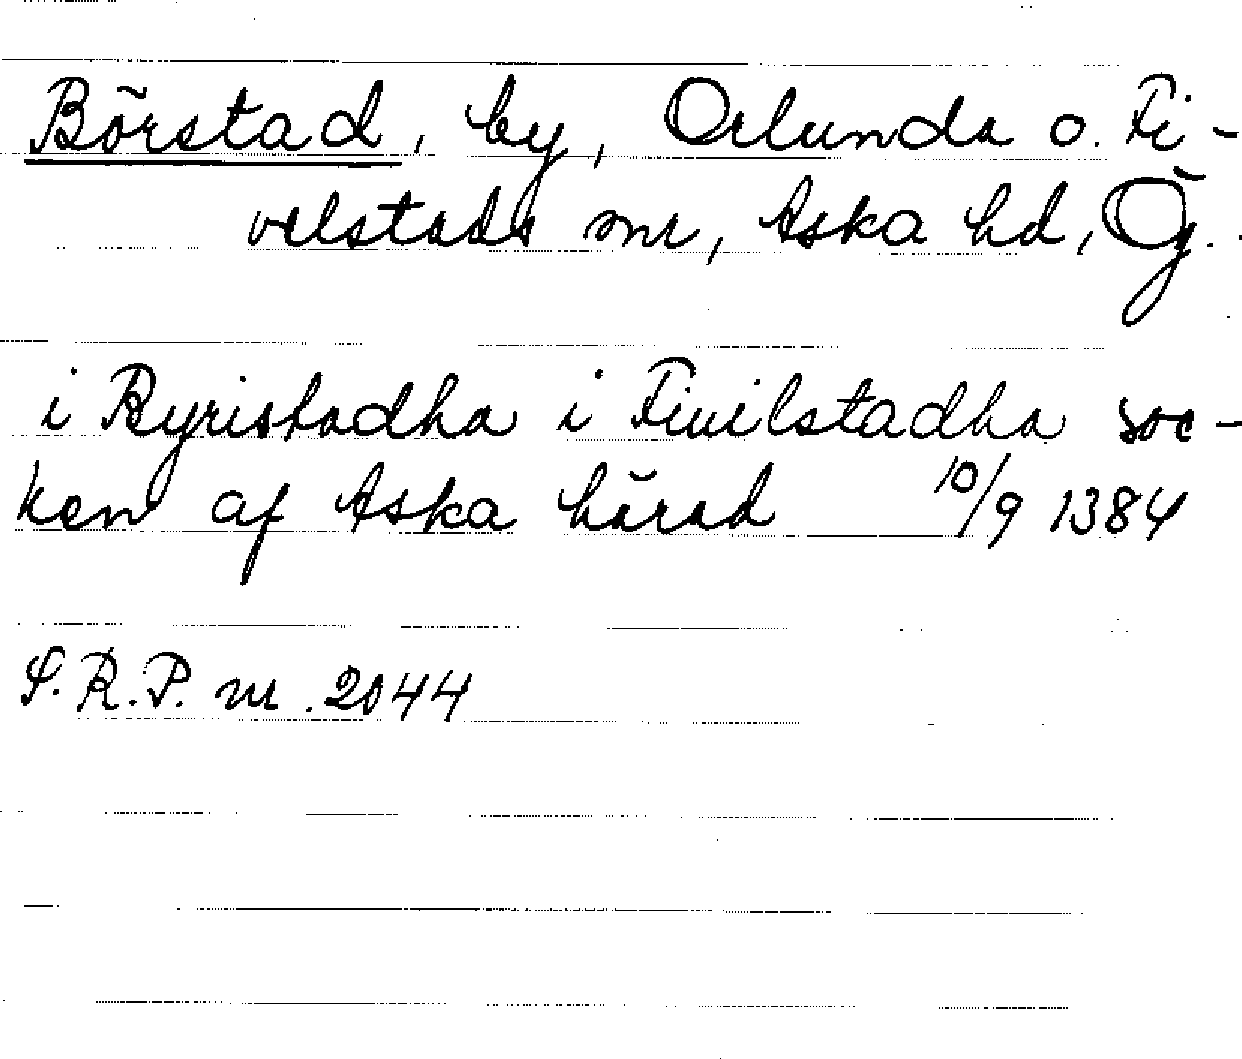 Börstad, by, Orlunda o. Fi-
velstads snr, Aska hd, Ög.
i Byristadha i Fiuilstadha soc-
ken af Aska härad 10/9 1384
S.R.P. nr. 2044